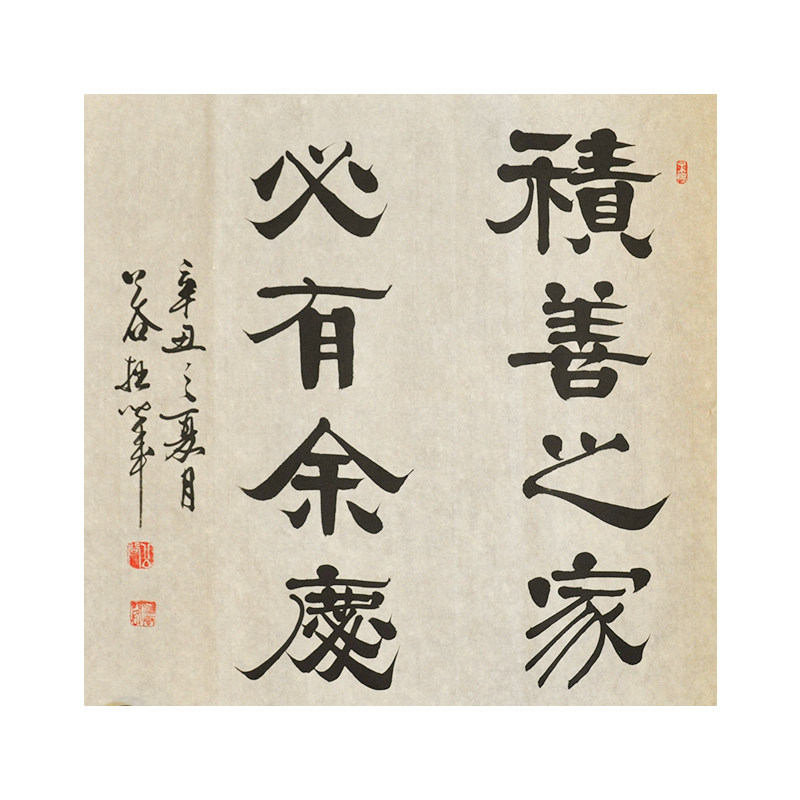 積善之家
必有余慶
辛丑之夏月
公谷拙筆